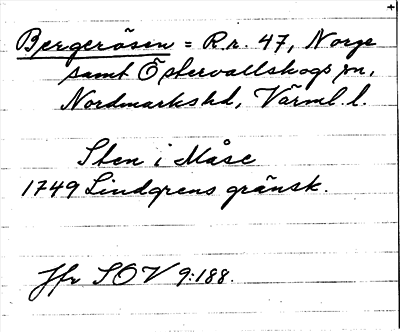 Bergerösen = R.r. 47, Norge
samt Östervallskogs sn,
Nordmarks hd, Värml. l.
Sten i Måse
1749 Lindgrens gränsk.
Jfr SOV 9:188.